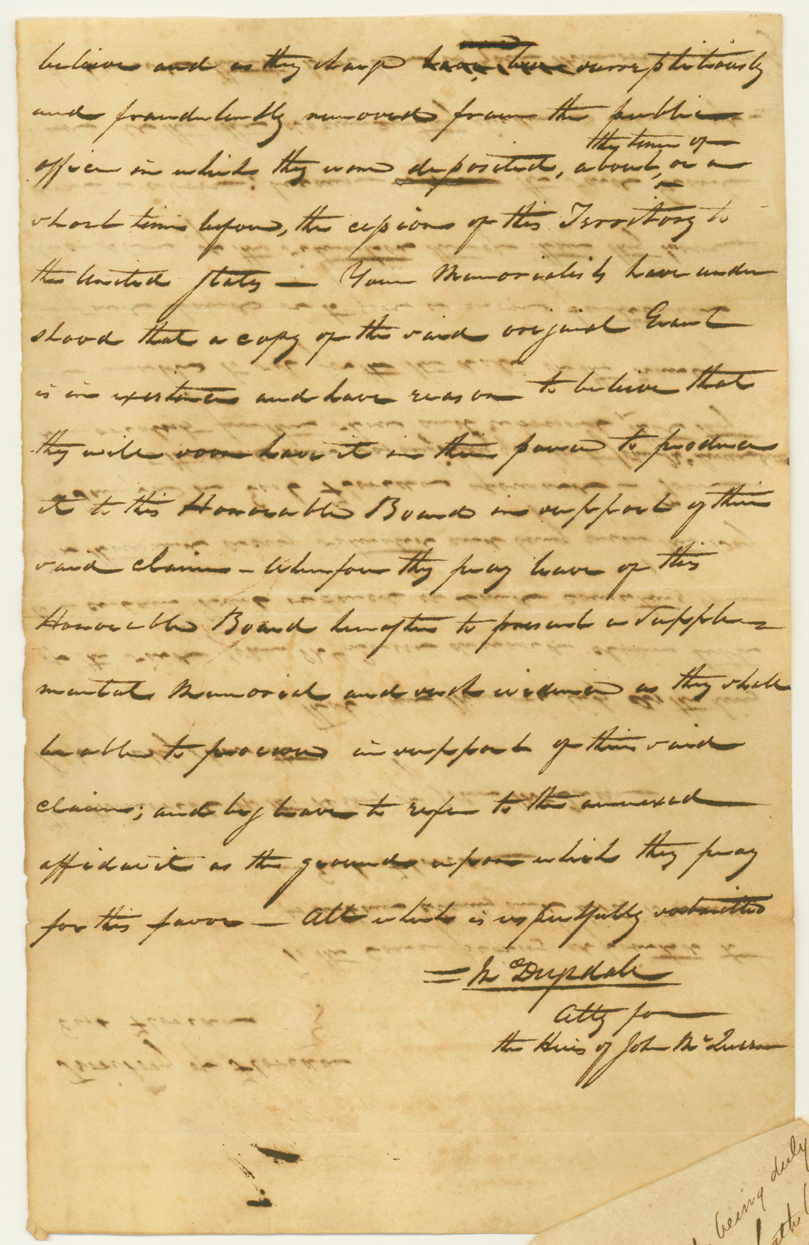 believe and as they charge surreptitiously
and fraudulently removed from the public
the time of
office in which they were deposited, about, or a
short time before, the cession of this Territory to
the United States — Your Memorialists have under
stood that a copy of the said original Grant
is in existence and have reason to believe that
they will soon have it in their power to produce
it to this Honorable Board in support of their
said claim — Wherefore they pray leave of this
Honorable Board hereafter to present a Supple=
mental Memorial and such evidence as they shall
be able to procure in support of their said
claim; and beg leave to refer to the annexed
affidavit as the grounds upon which they pray
for this favor — All which is respectfully submitted
Drysdale
Atty for
the Heirs of John McQueen
East Florida
Territory of Florida
being duly